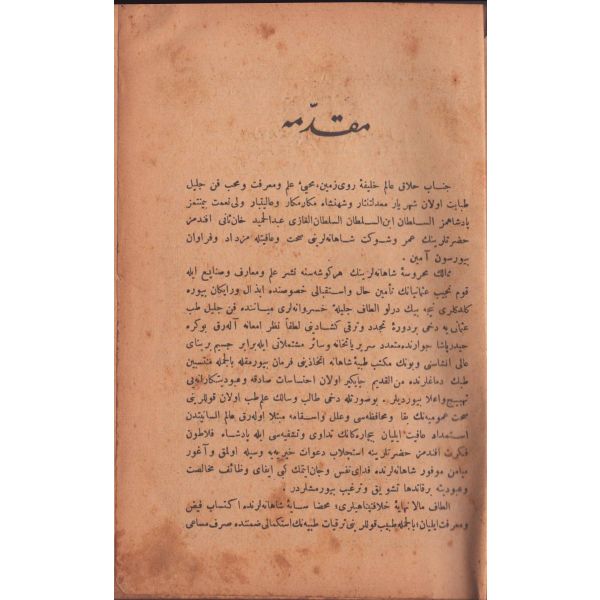 مقدّمه
جناب خلاق عالم خلیفهٔ روی زمین، محیئ علم ومعرفت ومحب فن جلیل
طبابت اولان شهریار معدلتنثار وشهنشاه مکارمکار وعالیتبار ولی نعمت بیمنتمز
پادشاهمز السلطان ابن السلطان السلطان الغازی عبدالحمید خان ثانی افندمز
حضرتلرینك عمر وشوکت شاهانه‌لرینی صحت وعافیتله مزداد وفراوان
بیورسون آمین .
ممالك محروسهٔ شاهانه‌لرینك هرکوشه‌سنه نشر علم ومعارف وصنایع ایله
قوم نجیب عثمانیانك تأمین حال واستقبالی خصوصنده ابذال ورایکان بیوره
کلدکلری نیجه بیك درلو الطاف جلیلهٔ خسروانه‌لری میاننده فن جلیل طب
عثمانی یه دخی بردورهٔ تجدد وترقی کشادینی لطفاً نظر امعانه آله‌رق بوکره
حیدرپاشا جوارنده متعدد سریریاتخانه وسائر مشتملاتی ایله برابر جسیم بربنای
عالی انشاسنی وبونك مکتب طبیهٔ شاهانه اتخاذینی فرمان بیورمقله بالجمله منتسبین
طبك دماغلرنده من القدیم جایکیر اولان احتساسات صادقه وعبودیتکارانه‌یی
تهییج واعلا بیوردیلر . بوصورتله دخی طالب وسالك علم طب اولان قوللرینی
صحت عمومیه‌نك بقا ومحافظه‌سی وعلل واسقامه مبتلا اوله‌رق عالم انسانیتدن
استمداد عافیت ایلیان بیچارکانك تداوی وتشفیه‌سی ایله پادشاه فلاطون
فکرت افندمز حضرتلرینه استجلاب دعوات خیریه‌یه وسیله اولمق و
میامن موفور شاهانه‌لرنده فدای نفس وجان ایتمك کبی ایفای وظائف مخالصت
وعبودیته برقاتدها تشویق وترغیب بیورمشلردر .
الطاف مالا نهایهٔ خلافتپناهیلری، محضا سایهٔ شاهانه‌لرنده اکتساب فیض
ومعرفت ایلیان، بالجمله طبیب قوللرینی ترقیات طبیه‌نك استکمالی ضمننده صرف مساعی